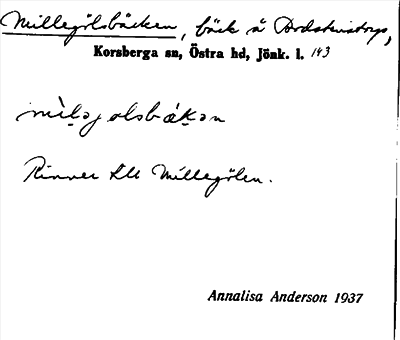 Millegölsbäcken, bäck å
Korsberga sn, Östra hd, Jönk. l. 143
mìləjolsbǽkən
Rinner till Millegölen.
Annalisa Anderson 1937